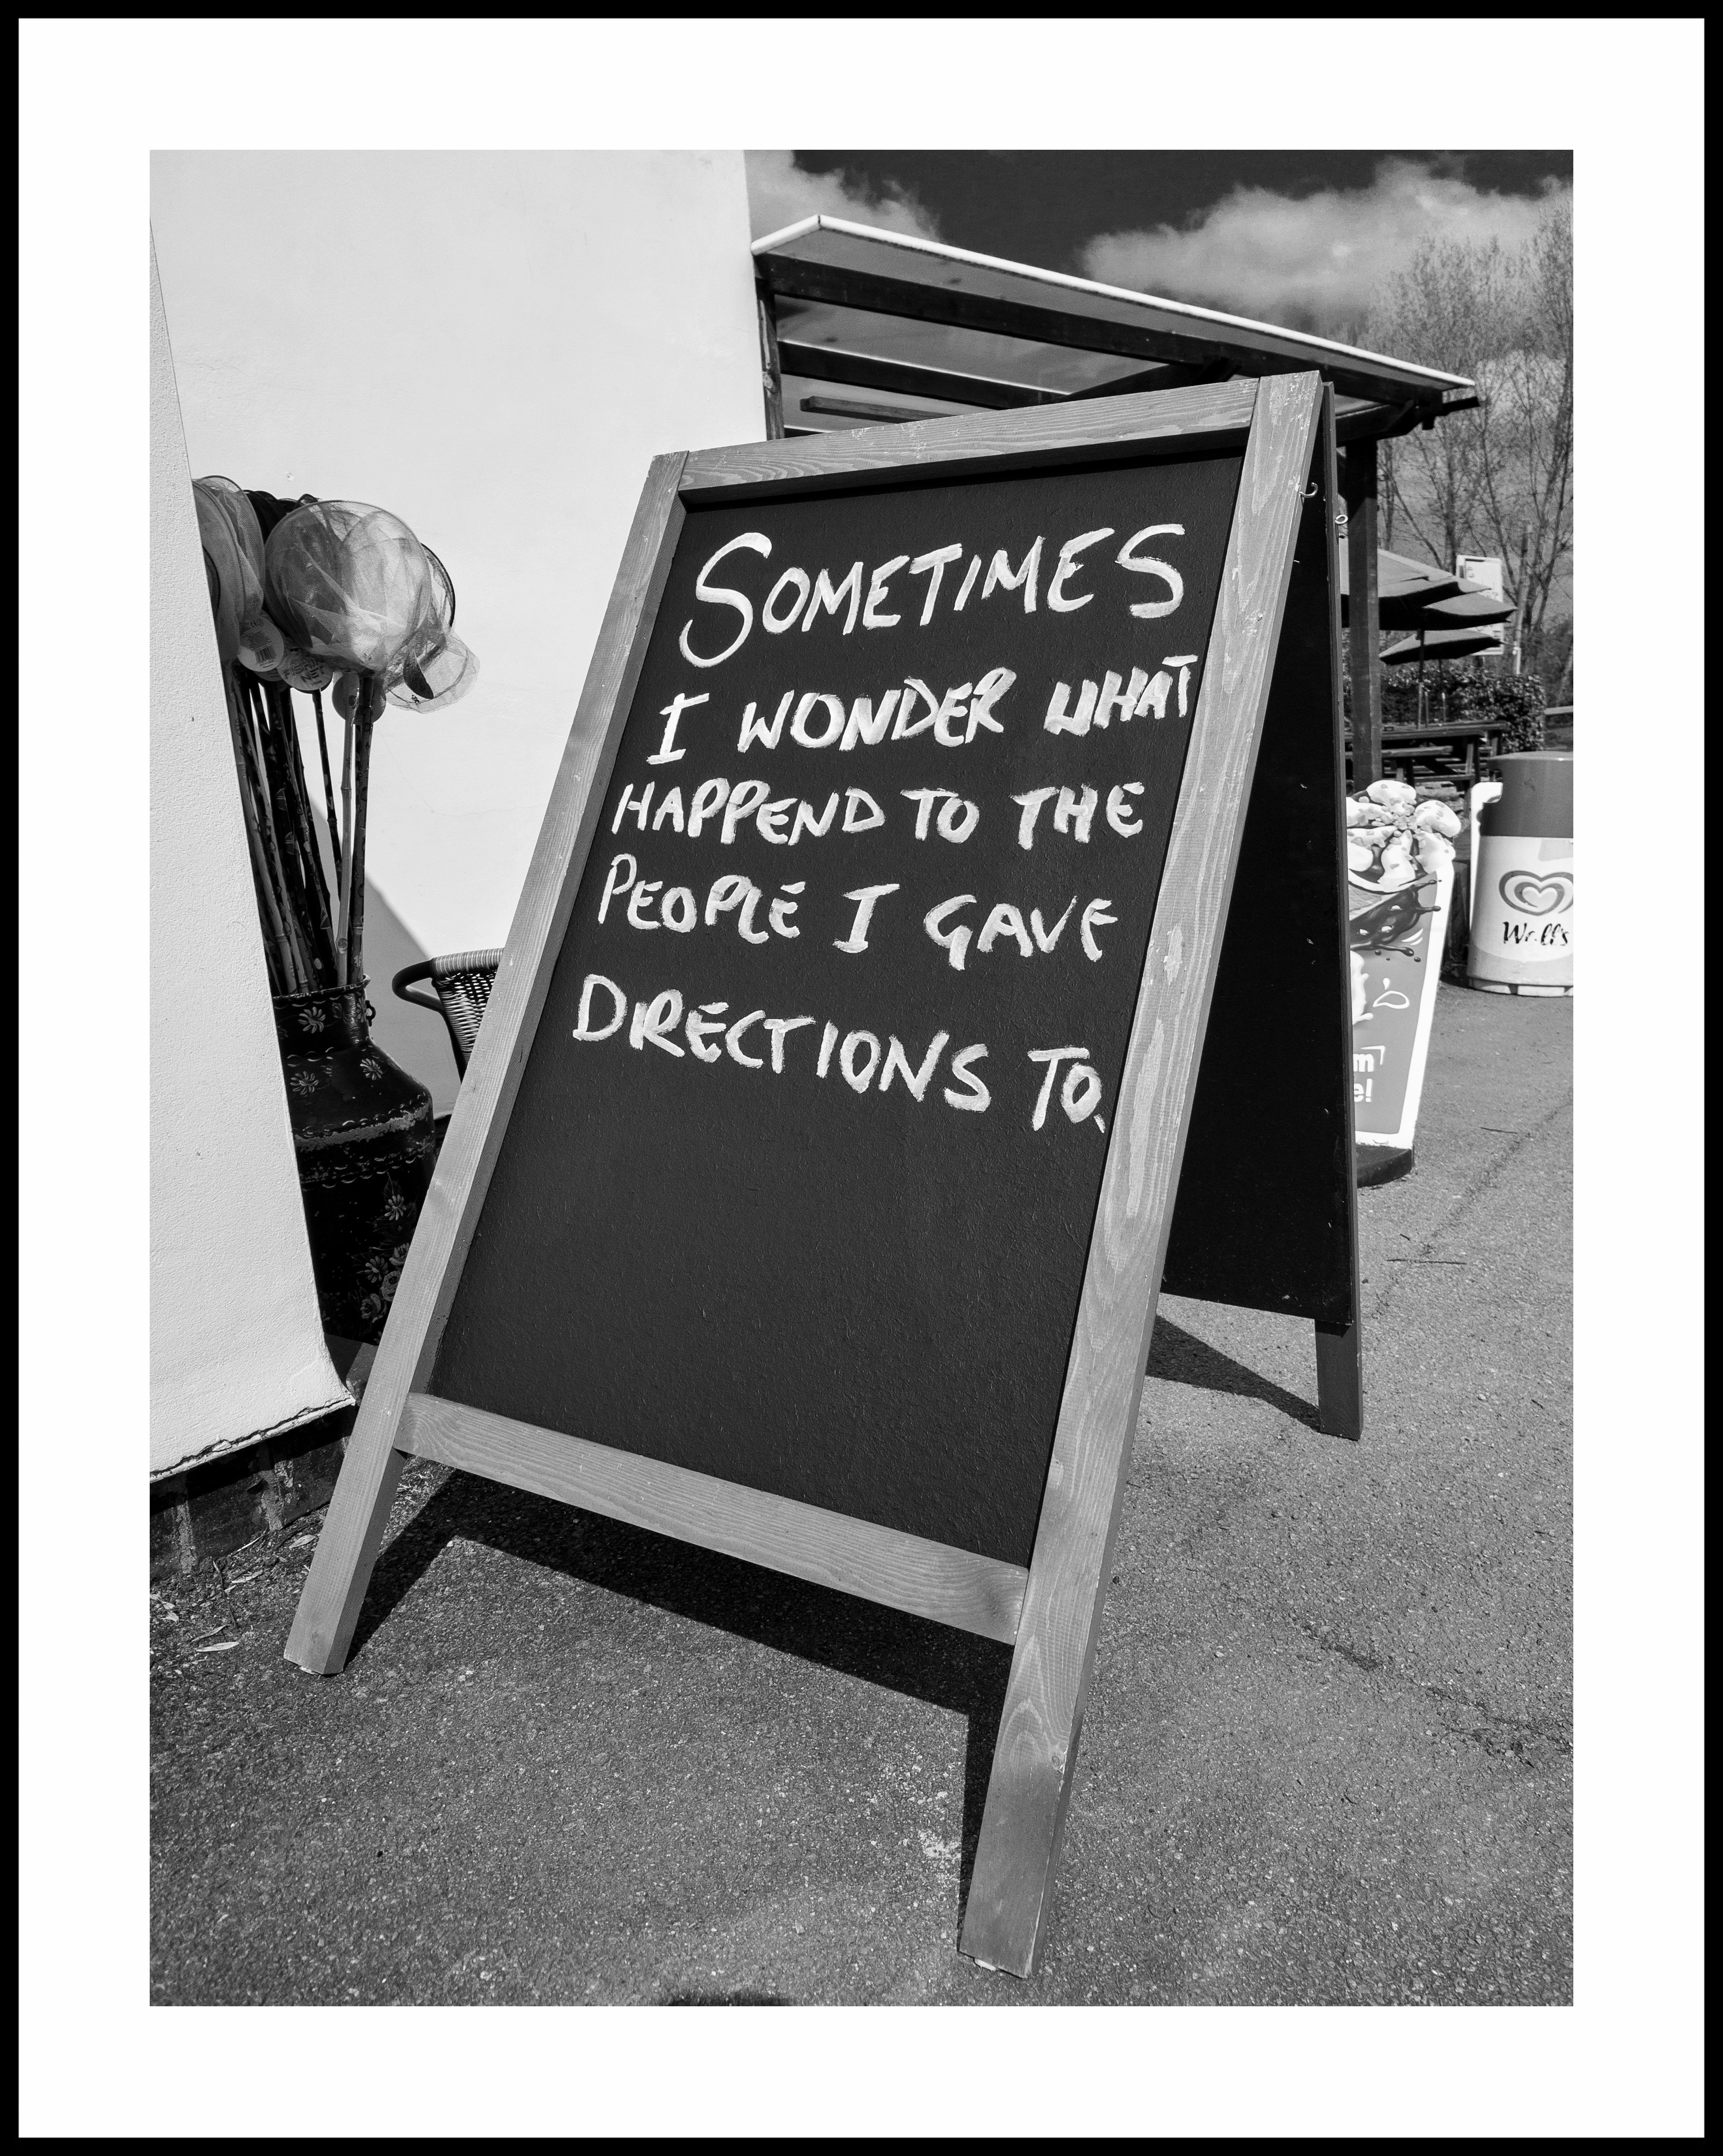 SOMETIMES
I WONDER WHAT
HAPPEND TO THE
PEOPLE I GAVE
DIRECTIONS TO.
Wall's